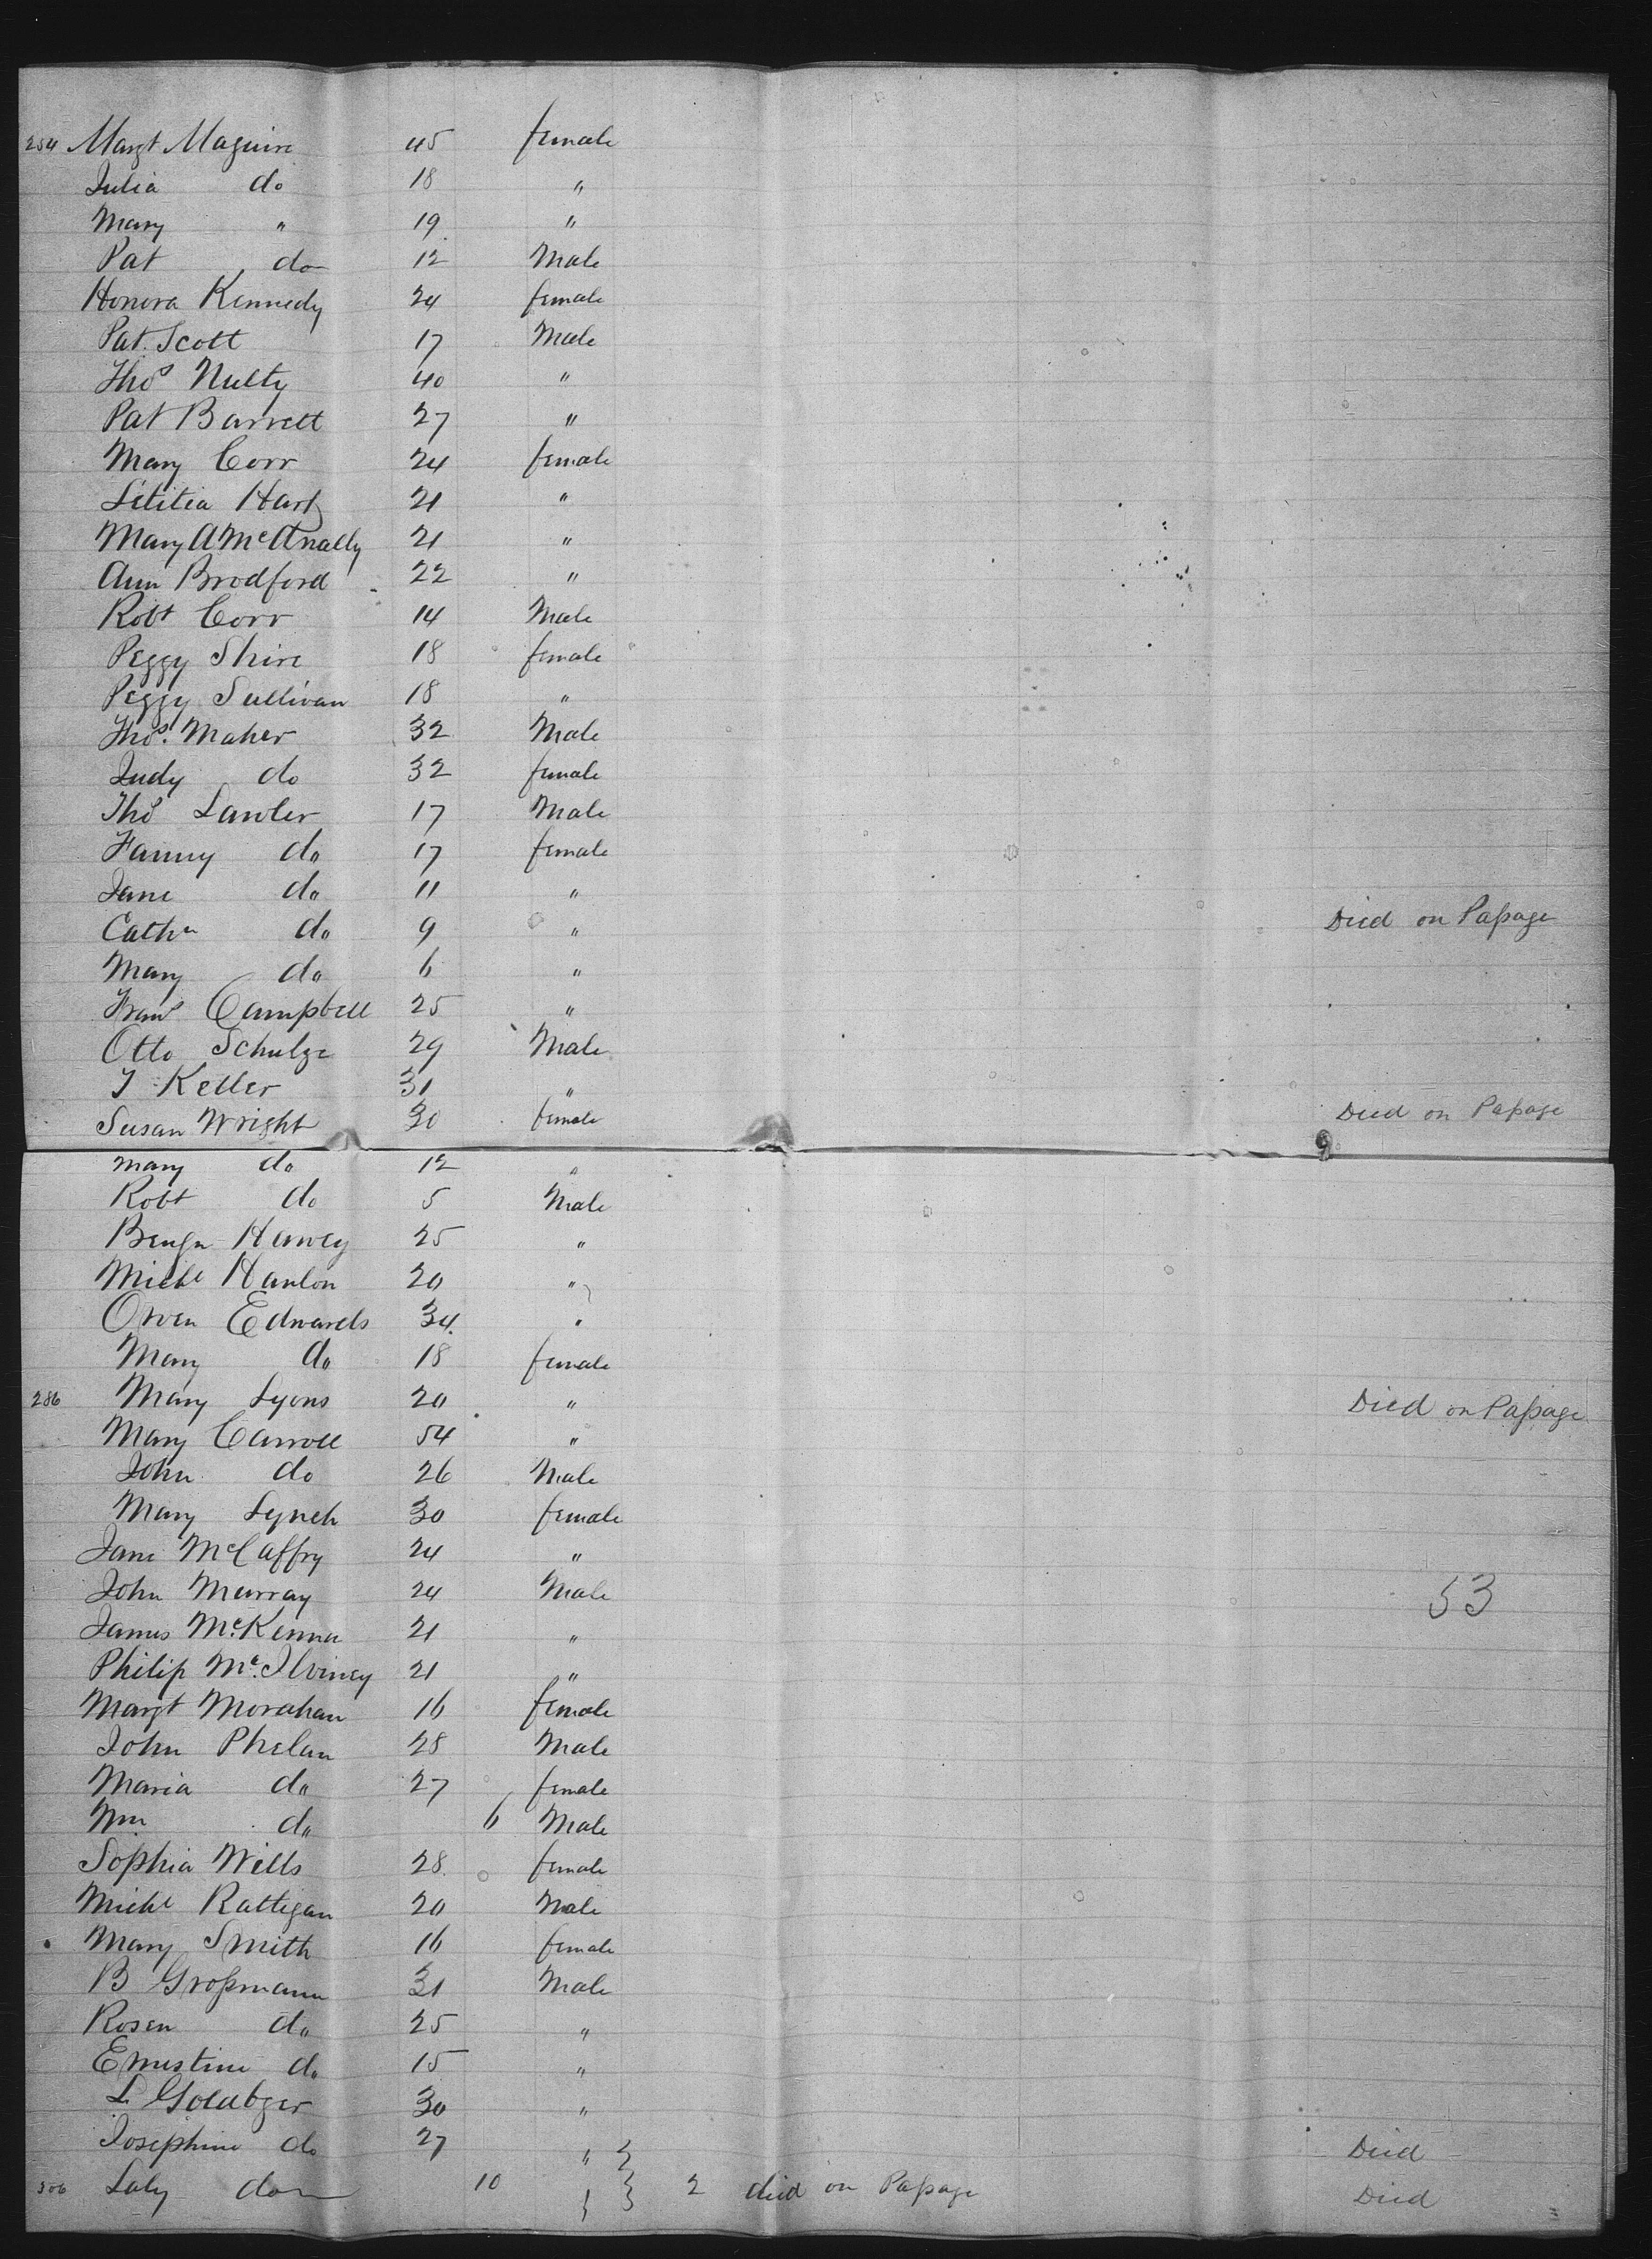 254 Margt Maguire 45 female
Julia do 18 "
Mary " 19 "
Pat do 12 Male
Honora Kennedy 24 female
Pat. Scott 17 Male
Thos Nulty 40 "
Pat Barrett 27 "
Mary Corr 24 female
Letitia Hart 21 "
Mary A McAnally 21 "
Ann Brodford 22 "
Robt Corr 14 Male
Peggy Shire 18 female
Peggy Sullivan 18 "
Thos. Maher 32 Male
Judy do 32 female
Thos Lawler 17 Male
Fanny do 17 female
Jane do 11 "
Cathn do 9 " Died on Passage
Mary do 6 "
Frans Campbell 25 "
Otto Schulze 29 Male
J Keller 31 "
Susan Wright 30 female Died on Passage
Mary do 12 "
Robt do 5 Male
Benjn Harvey 25 "
Michl Hanlon 20 "
Owen Edwards 34 "
Mary do 18 female
286 Mary Lyons 20 " Died on Passage
Mary Carroll 54 "
John do 26 Male
Mary Lynch 30 female
Jane McCaffry 24 "
John Murray 24 Male 53
James McKenna 21 "
Philip Mc.Ilviney 21 "
Margt Morahan 16 female
John Phelan 28 Male
Maria do 27 female
Wm do 6 Male
Sophia Wills 28 female
Michl Rattigan 20 Male
Mary Smith 16 female
B Grossmann 31 Male
Rosen do 25 "
Ernestine do 15 "
L 30 "
Josephine do 27 " Died
306 Laly do 10 2 died on Passage Died